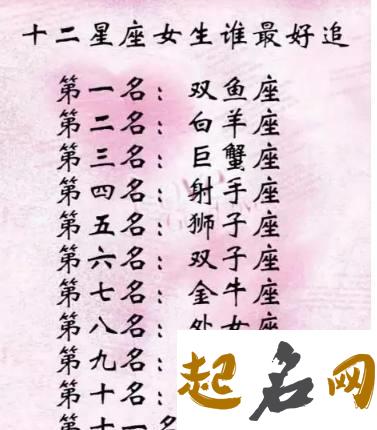 十二星座女生谁最好追
第一名：双鱼座
第二名：白羊座
第三名：巨蟹座
第四名：射手座
第五名：狮子座
第六名：双子座
第七名：金牛座
第八名：处女座
第九名：
第十名：
第十一名
起名网